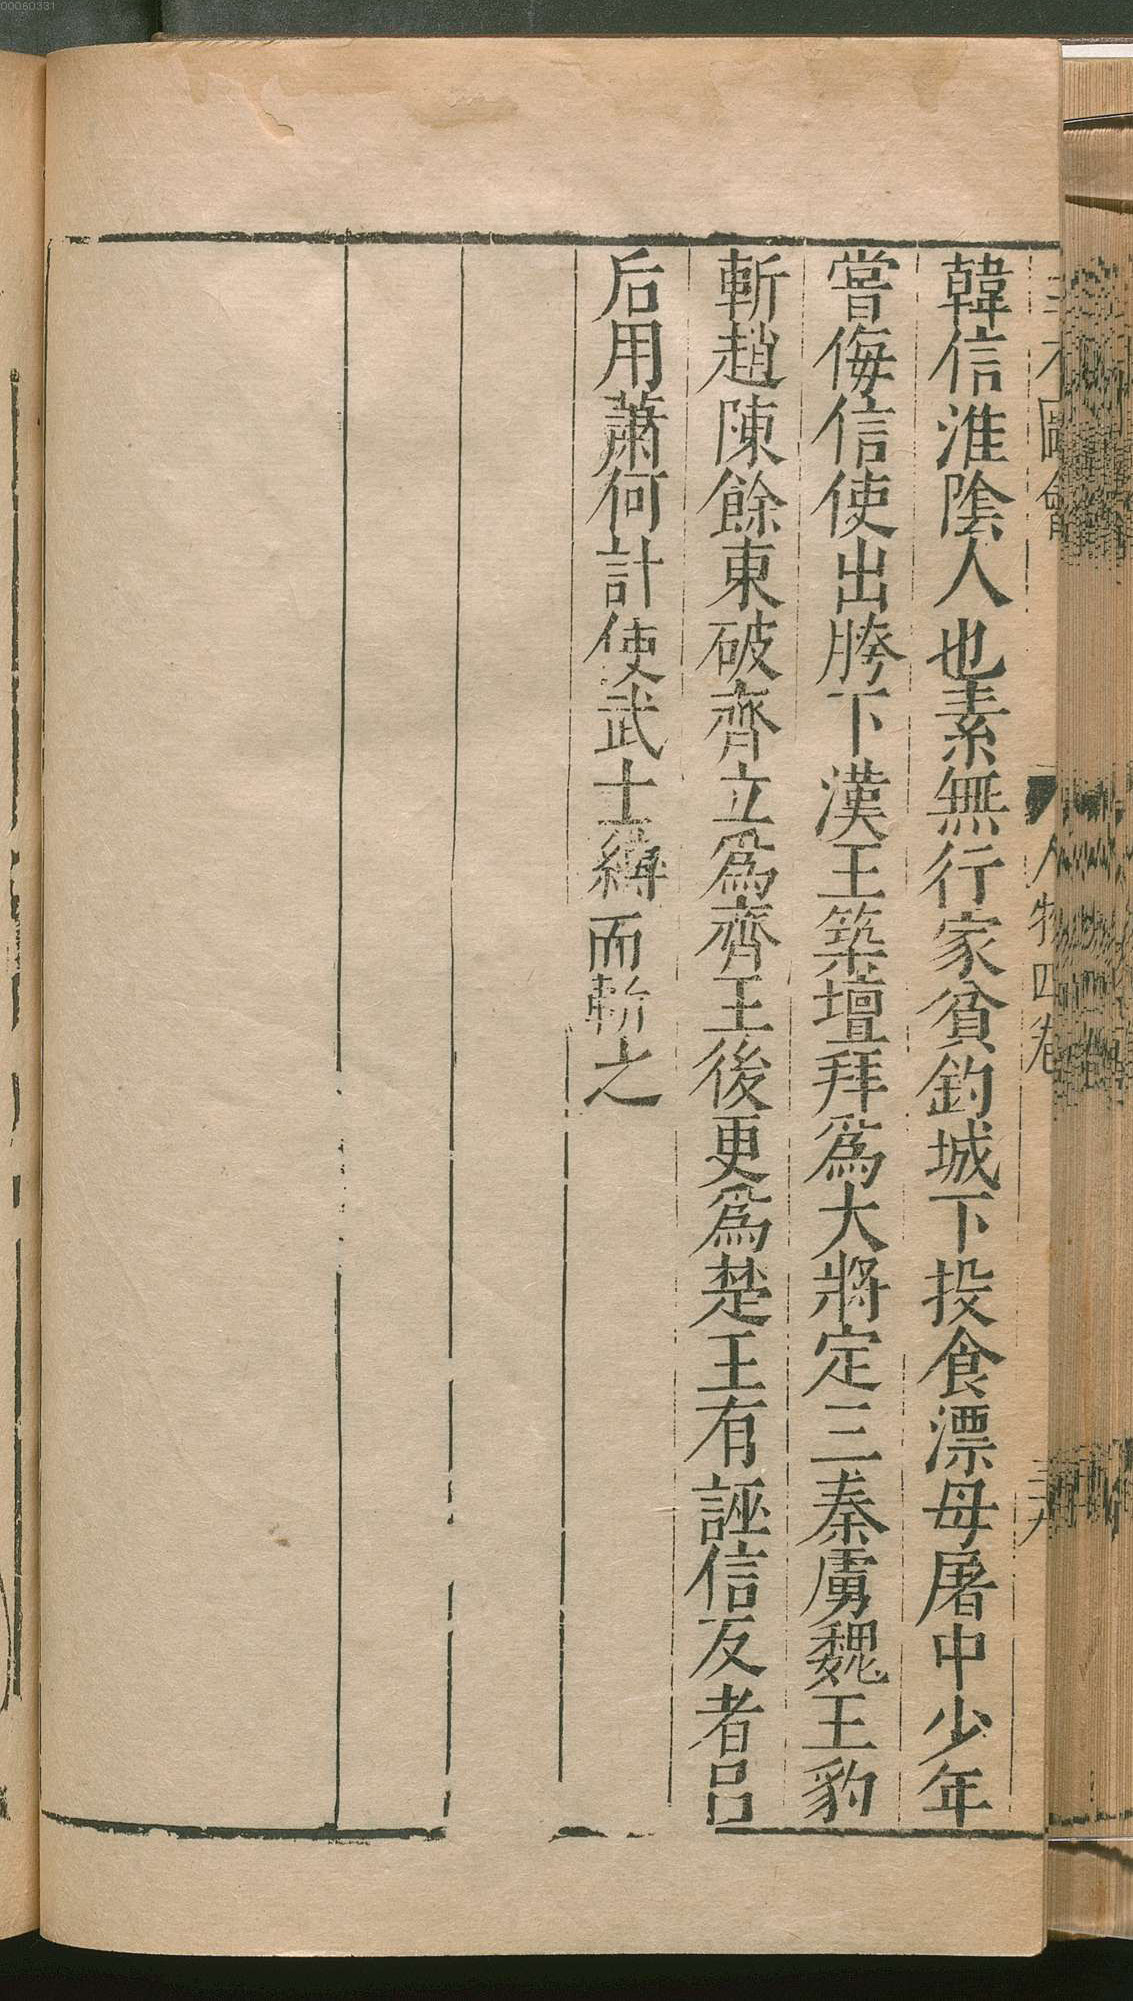 00060331
三才圖會 人物四卷
韓信淮陰人也素無行家貧釣城下投食漂母屠中少年
嘗侮信使出胯下漢王築壇拜爲大將定三秦虜魏王豹
斬趙陳餘東破齊立爲齊王後更爲楚王有誣信反者呂
后用蕭何計使武士縛而斬之